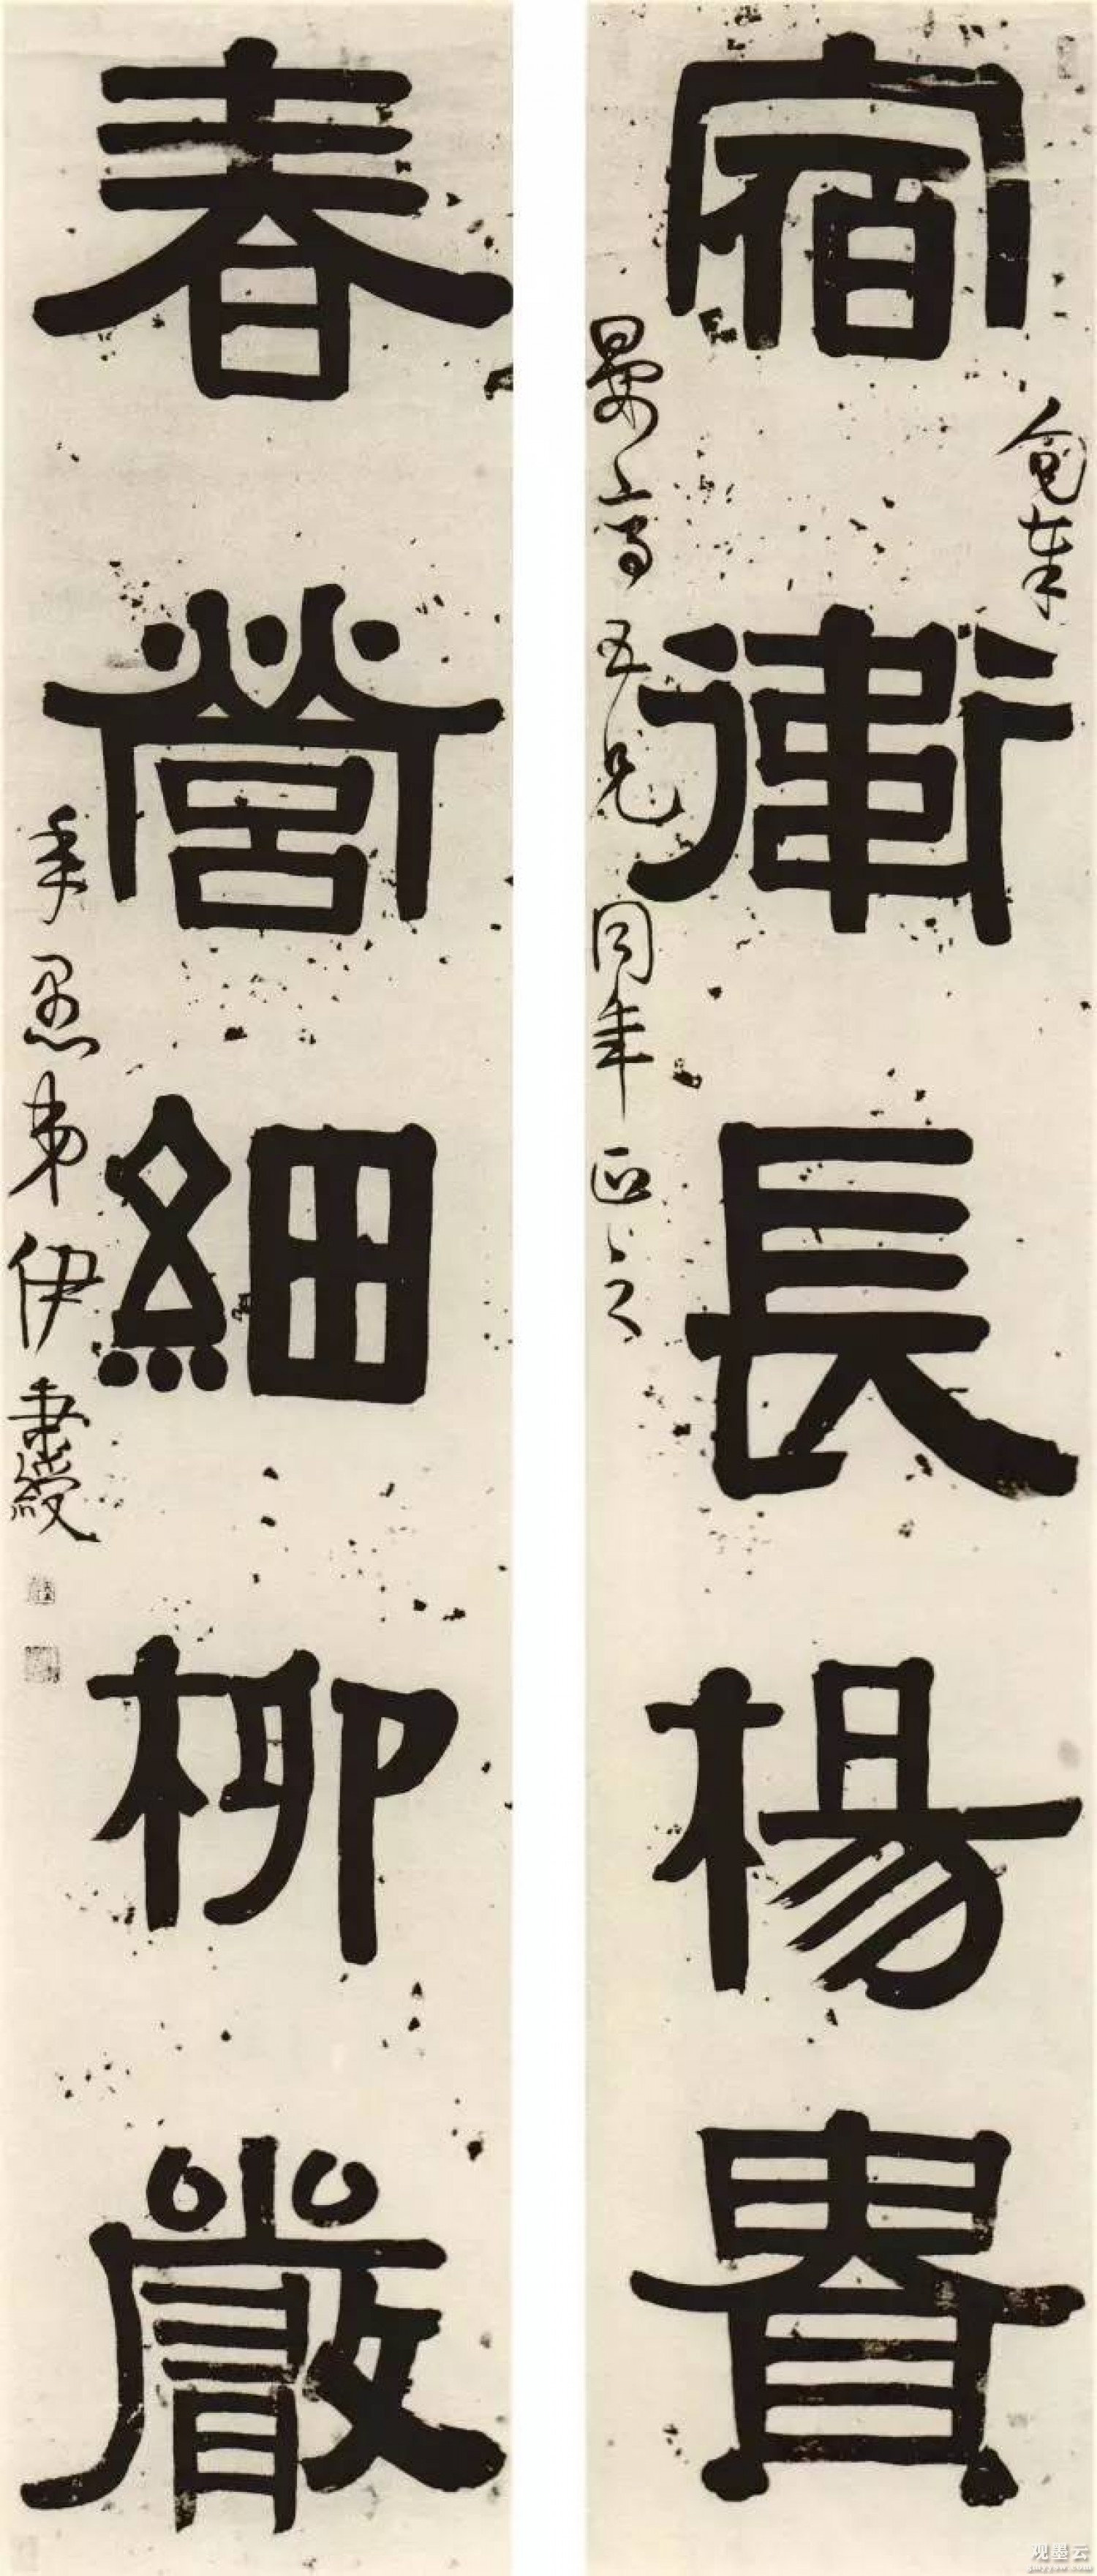 宿衛長楊貴
句奉
墨亭五兄同年正之
春營細柳嚴
年愚弟伊秉綬
观墨云